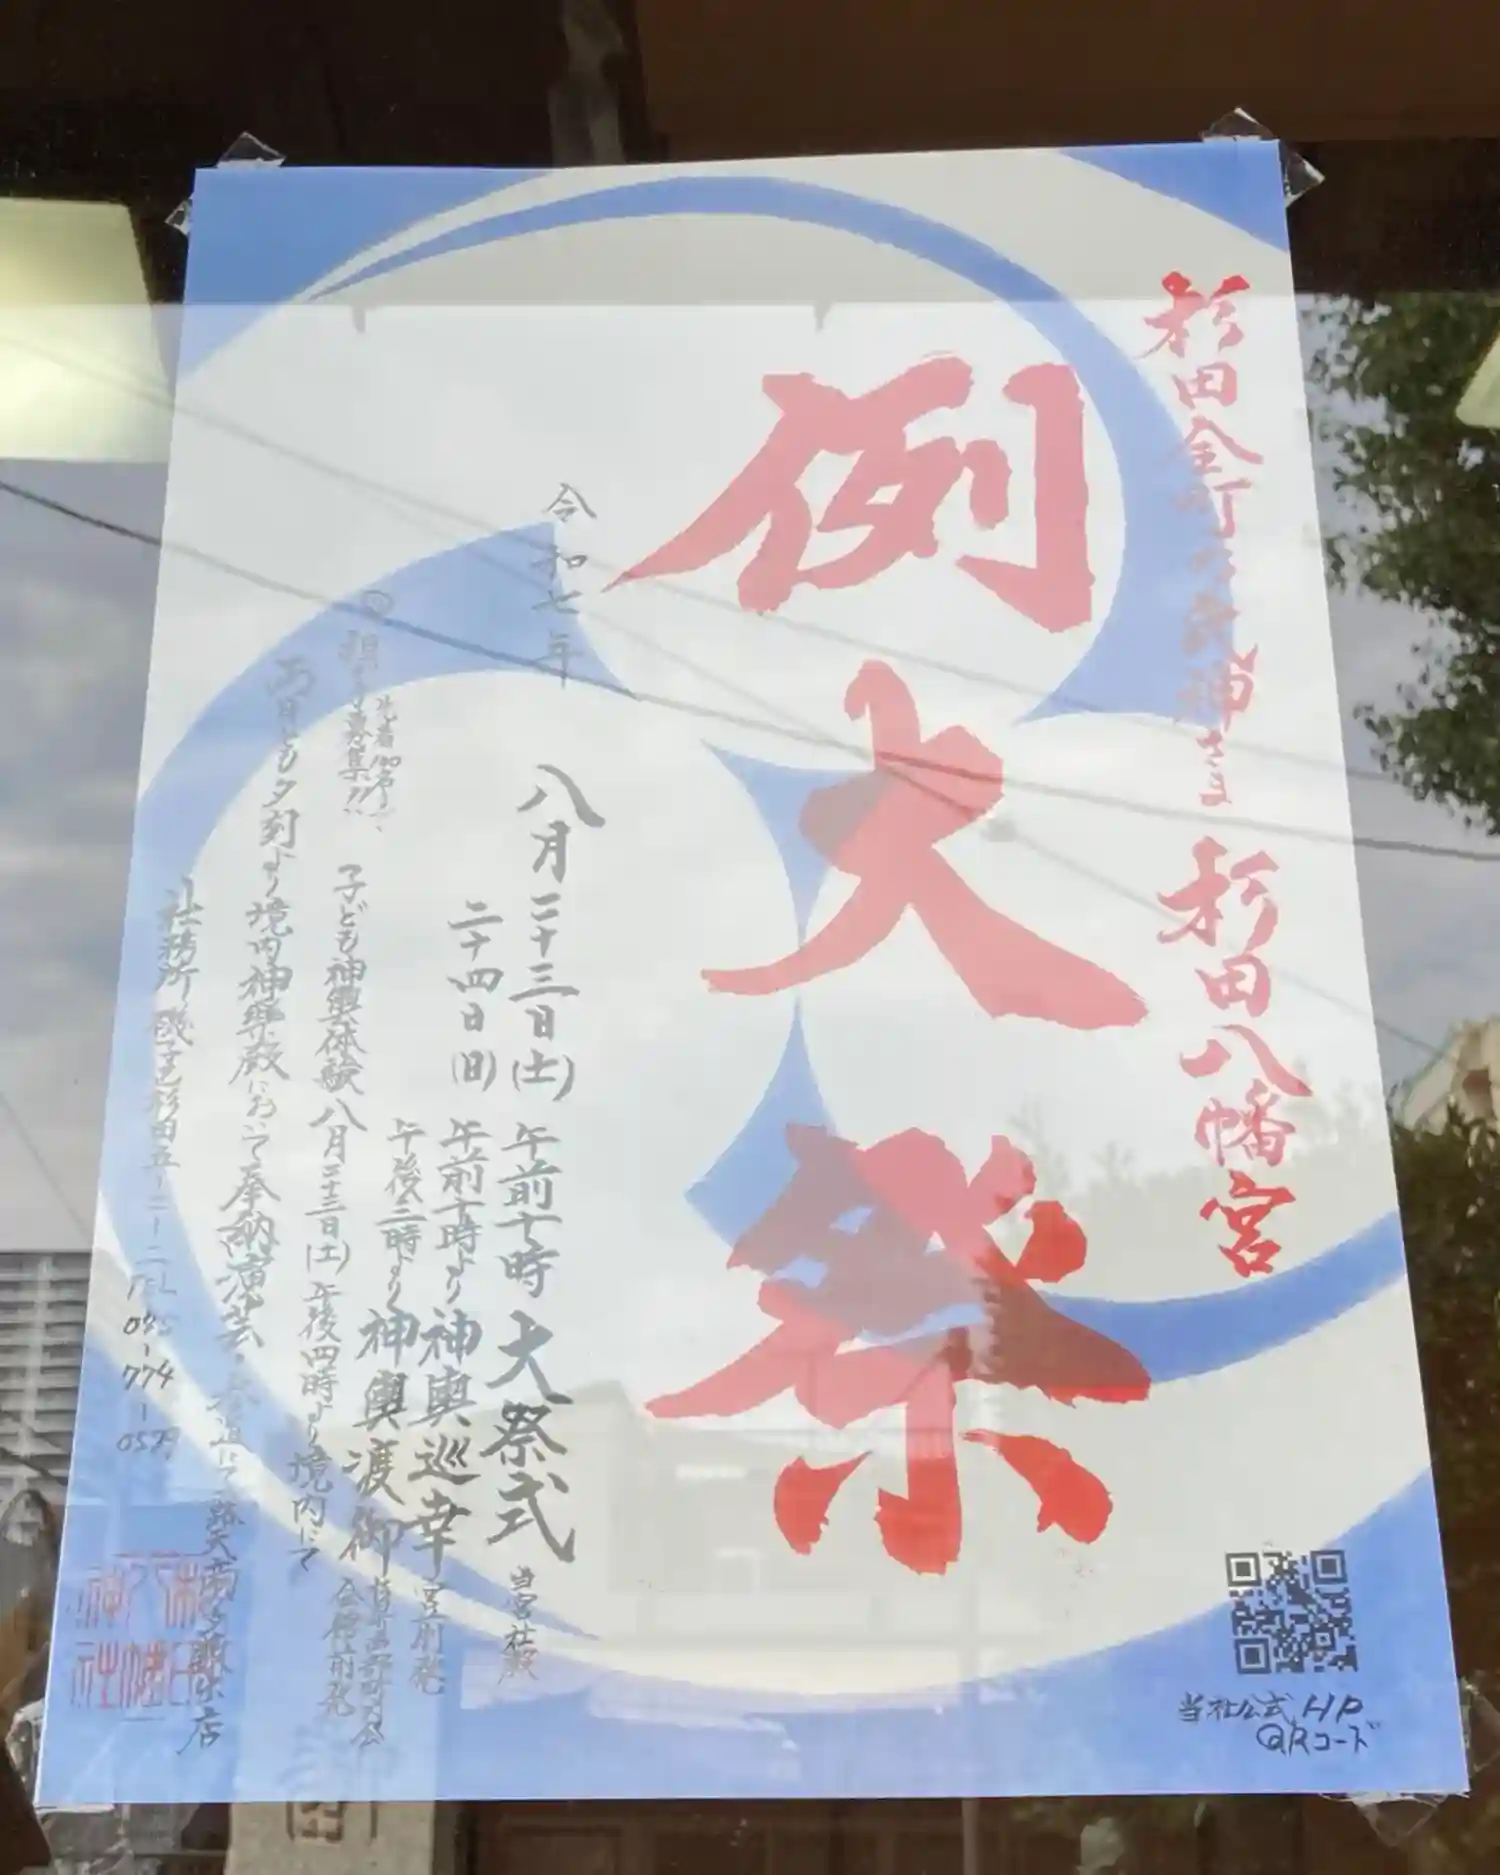 杉田全町の氏神さま 杉田八幡宮
例大祭
令和七年
八月二十三日(土) 午前十時 大祭式 当宮社殿
二十四日(日) 午前十時より 神輿巡幸 宮前発
午後二時より 神輿渡御 会館前発
◎担ぎ手募集!! 先着100名まで
子ども神輿体験 八月二十三日(土) 午後四時より境内にて
両日とも夕刻より境内神楽殿において奉納演芸・参道にて露天商多数出店
社務所 磯子区杉田五-二-二 TEL 045-774-0579
杉田八幡神社
当社公式HP
QRコード